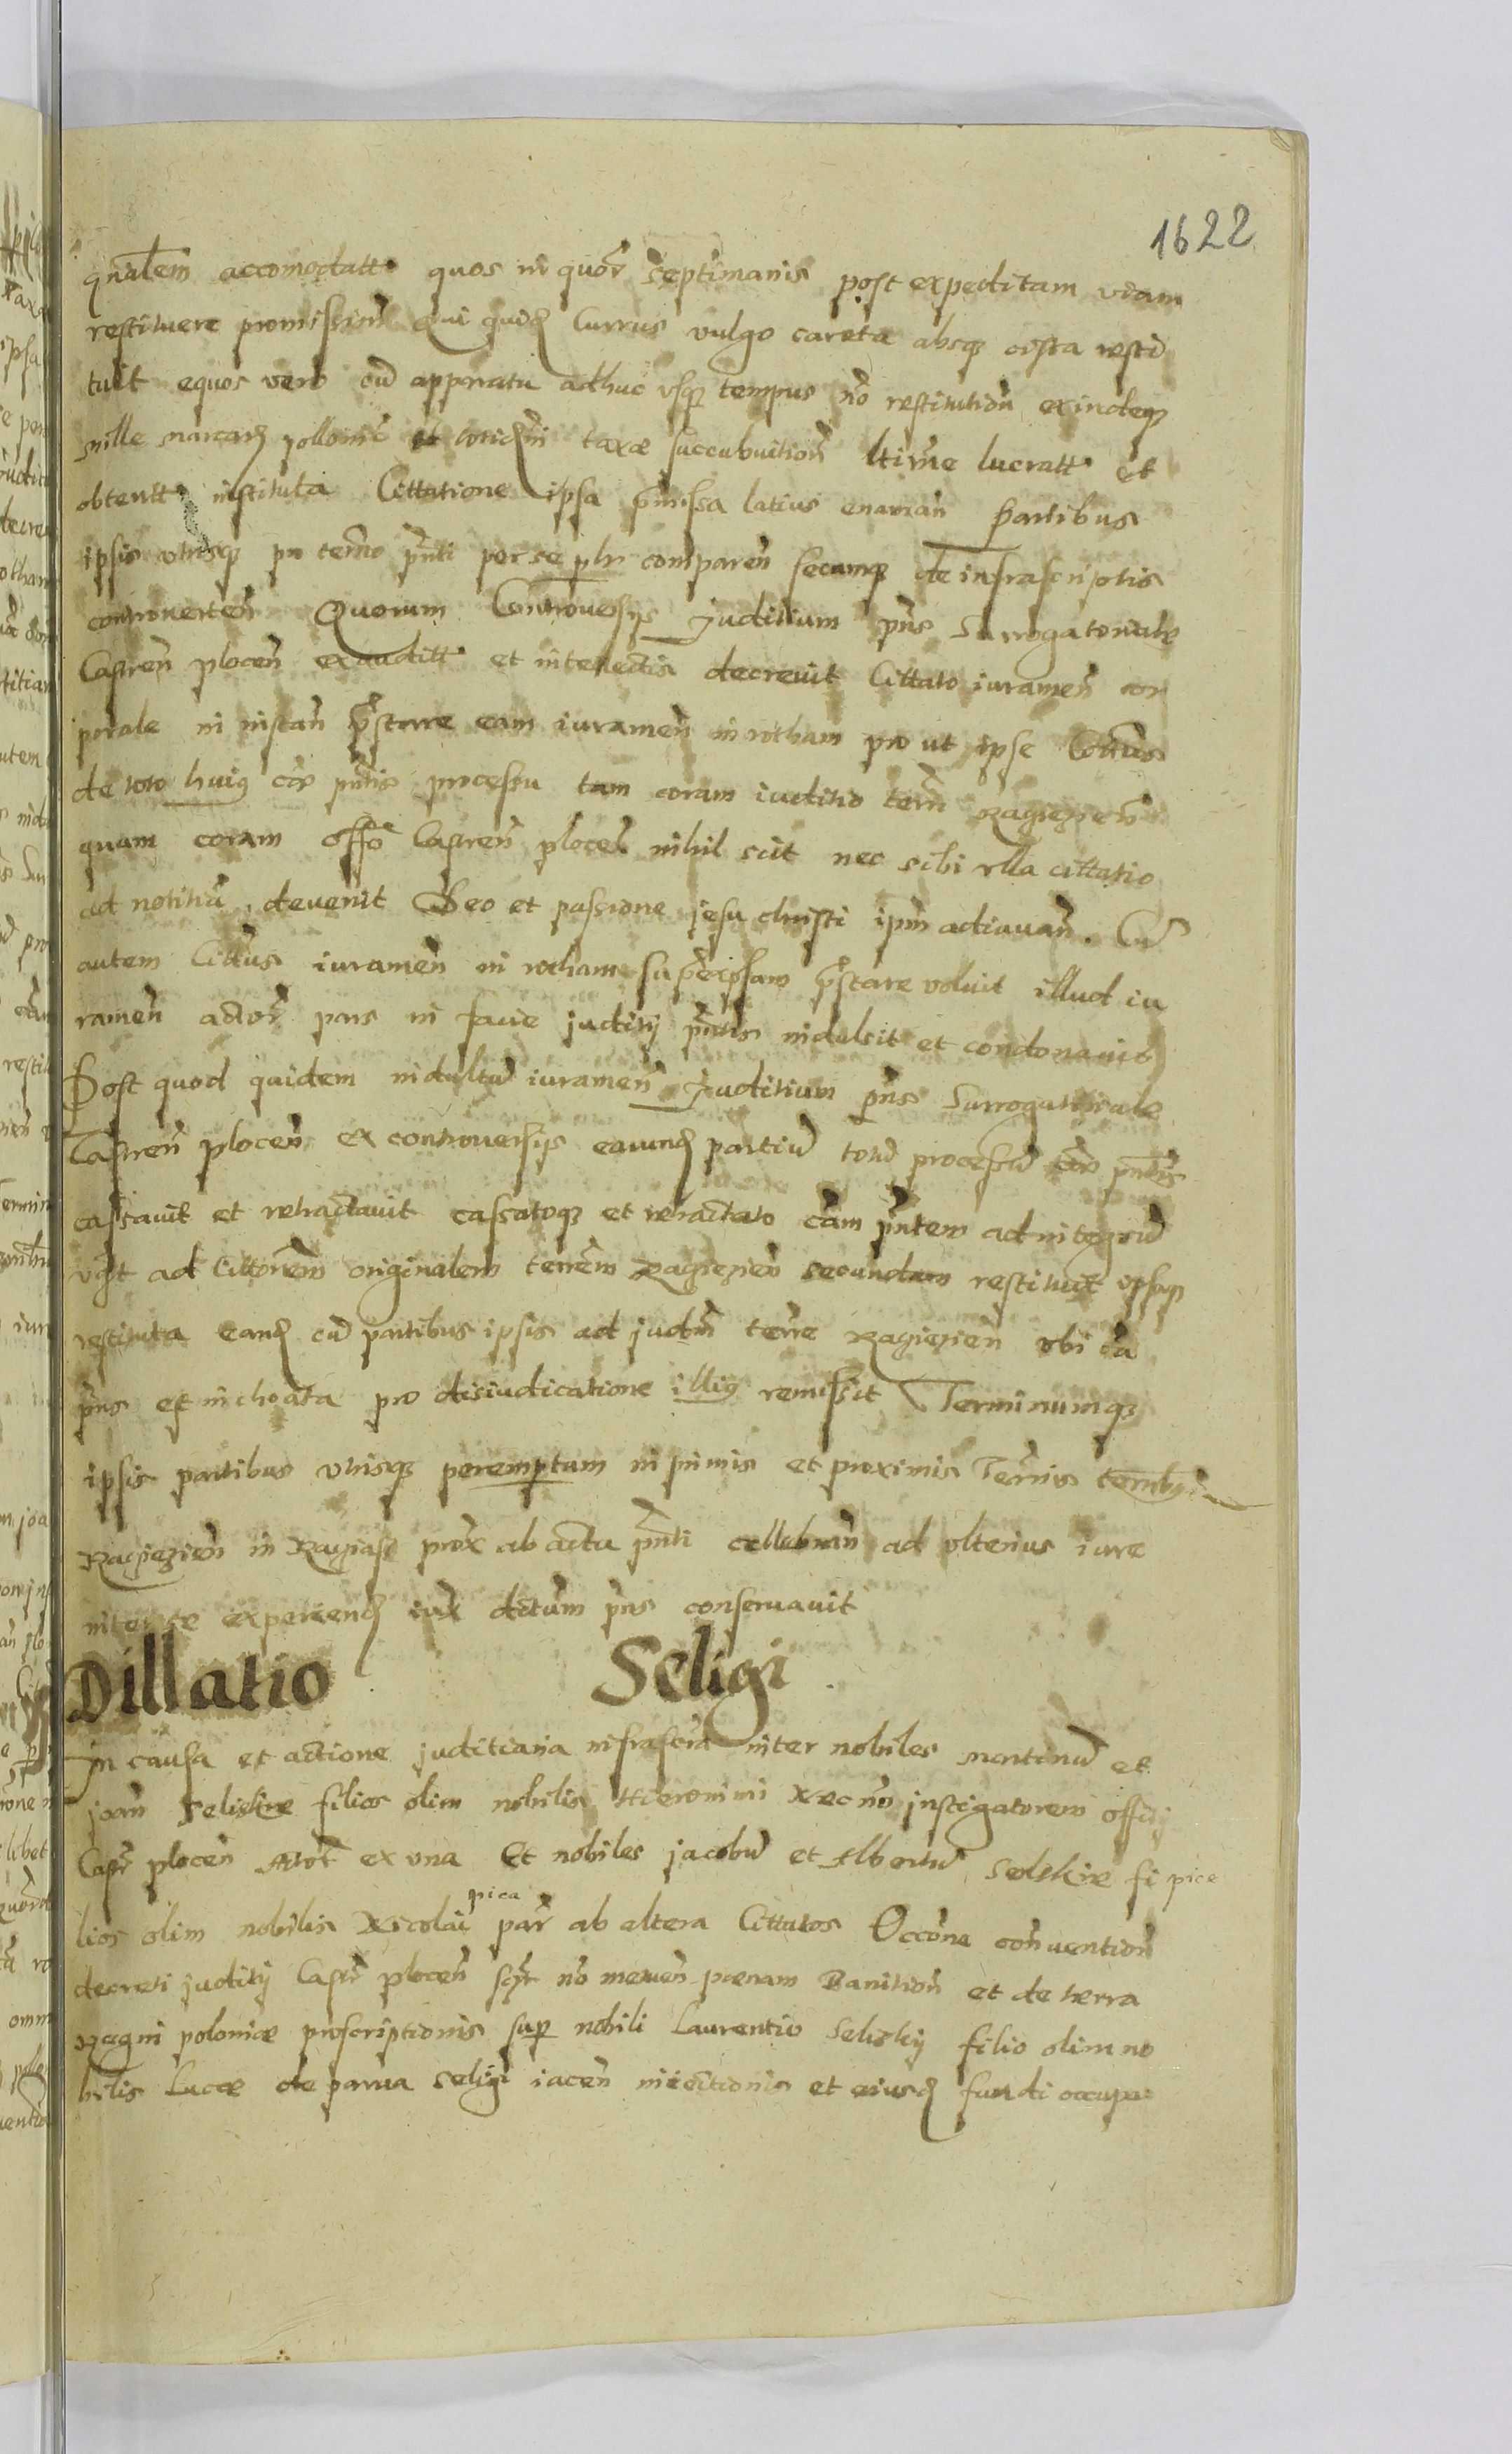 1622
qnalem accomodatt quos in quor septimanis post expeditam viam
restituere promission Qui quid Currus vulgo careta absq cista resti
tuit equos vero cu apparatu adhuc usq tempus no restitution exindeq
mille marcar pollonic et totidem taxæ succubuition ltime lucratt et
obtentt instituta Cittatione ipsa pmissa latius enarran Partibus
ipsis utrisq pro termo pnti per se plr comparen secumq de infrascriptis
controverten Quorum Controversys Juditium pns Surrogatoriale
Castren plocen exauditt et intellectis decrevit Cittato iuramen cor
porale in instan pstare eam iuramen in rotham pro ut ipse Cittus
de toto huig cæ pntis processu tam coram iuditio terr Ragiezien
quam coram offo Castren plocen nihil scit nec sibi ulla cittatio
ad notitia devenit Deo et passione jesu christi ipm adiuvan. Cu
autem Cittus iuramen in rotham supexpssam pstare voluit illud iu
ramen actor pars in facie juditij pntis indulsit et condonavit
Post quod quidem indultu iuramen Juditium pns Surrogatoriale
Castren plocen ex controversys earund partiu totu processu pntis
cassavit et retractavit cassatoq et retractato cam pntem ad integru
usq ad Cittonem originalem terrem Ragiezien secundam restituit ipsaq
restituta eand cu partibus ipsis ad judm terre Ragiezien ubi ca
pns est inchoata pro disiudicatione illig remissit Terminumq
ipsis partibus utrisq peremptum in primis et proximis Termis terrib
Ragiezien in Ragiasz prox ab actu pnti cellebran ad ulterius iure
inter se experiend iux dictum pns conservavit
Dillatio Seligi
In causa et actione juditiaria infrascra inter nobiles martinu et
joan Seliskie filios olim nobilis Hieronimi Nec no instigatorem offitij
Castr plocen Actor ex una Et nobiles jacobu et Albertu Selskie fi pice
lios olim nobilis Nicolai pica par ab altera Cittatos Occone convention
decreti juditij Castr plocen no metuen pænam Banition et de terra
Regni poloniæ proscriptionis sup nobili Laurentio Seliskij filio olim no
bilis Lucæ de parva Seligi iacen inieitionis et eiusd fundi occupa